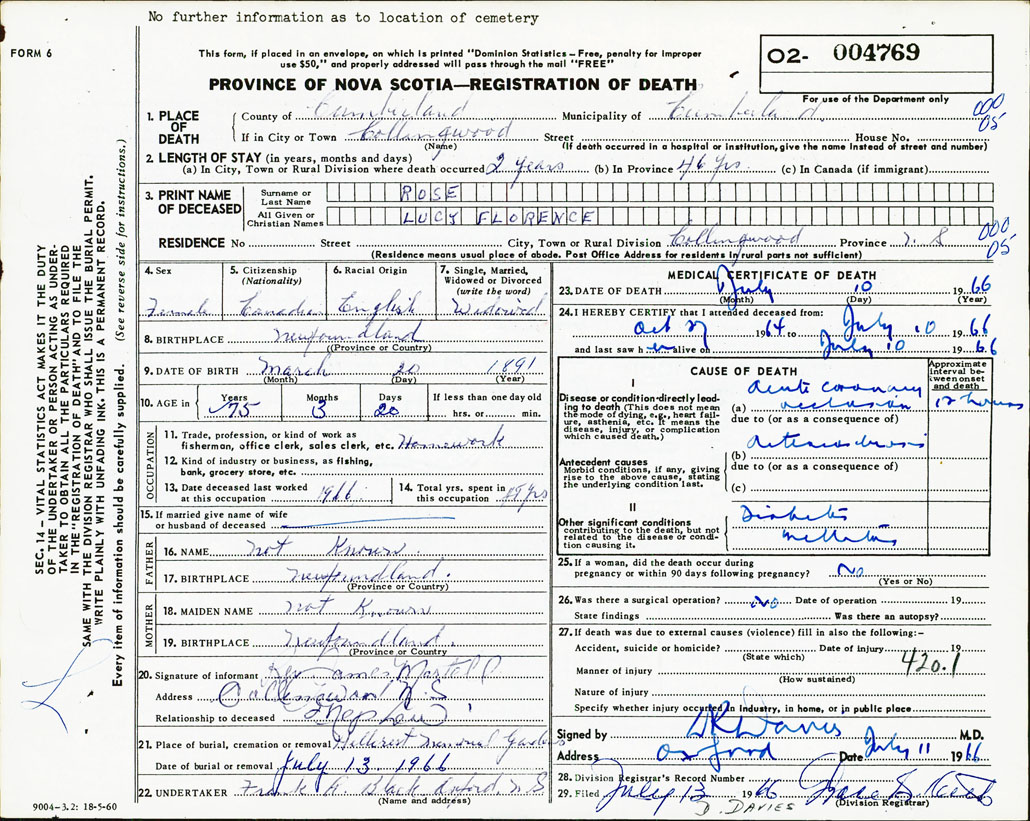 No further information as to location of cemetery
FORM 6
This form, if placed in an envelope, on which is printed "Dominion Statistics – Free, penalty for improper
use $50," and properly addressed will pass through the mail "FREE"
O2- 004769
PROVINCE OF NOVA SCOTIA—REGISTRATION OF DEATH
For use of the Department only
1. PLACE OF DEATH
County of Cumberland Municipality of Cumberland
If in City or Town Collingwood Street House No.
(Name) (If death occurred in a hospital or institution, give the name instead of street and number)
000
05
2. LENGTH OF STAY (in years, months and days)
(a) In City, Town or Rural Division where death occurred 2 years (b) In Province 46 yrs. (c) In Canada (if immigrant)
3. PRINT NAME OF DECEASED
Surname or Last Name ROSE
All Given or Christian Names LUCY FLORENCE
RESIDENCE No Street City, Town or Rural Division Collingwood Province N. S
000
05
(Residence means usual place of abode. Post Office Address for residents in rural parts not sufficient)
4. Sex Female
5. Citizenship (Nationality) Canadian
6. Racial Origin English
7. Single, Married, Widowed or Divorced (write the word) Widowed
8. BIRTHPLACE Newfoundland
(Province or Country)
9. DATE OF BIRTH March 20 1891
(Month) (Day) (Year)
10. AGE in Years 75 Months 3 Days 20 If less than one day old hrs. or min.
OCCUPATION
11. Trade, profession, or kind of work as
fisherman, office clerk, sales clerk, etc. Homework
12. Kind of industry or business, as fishing,
bank, grocery store, etc.
13. Date deceased last worked at this occupation 1966
14. Total yrs. spent in this occupation yrs
15. If married give name of wife
or husband of deceased
FATHER
16. NAME not Known
17. BIRTHPLACE Newfoundland.
(Province or Country)
MOTHER
18. MAIDEN NAME not Known
19. BIRTHPLACE Newfoundland.
(Province or Country)
20. Signature of informant James Martell
Address Collingwood N.S
Relationship to deceased Nephew
21. Place of burial, cremation or removal Hillcrest Memorial Gardens
Date of burial or removal July 13 1966
22. UNDERTAKER Frank A. Black Oxford, N S
(Name and address)
9004-3.2: 18-5-60
MEDICAL CERTIFICATE OF DEATH
23. DATE OF DEATH July 10 1966
(Month) (Day) (Year)
24. I HEREBY CERTIFY that I attended deceased from:
Oct 27 1964 to July 10 1966
and last saw h er alive on July 10 1966
CAUSE OF DEATH
Approximate interval between onset and death
I
Disease or condition directly leading
to death (This does not mean
the mode of dying, e.g., heart failure,
asthenia, etc. It means the
disease, injury, or complication
which caused death.)
(a) Acute coronary occlusion 12 hours
due to (or as a consequence of)
Antecedent causes
Morbid conditions, if any, giving
rise to the above cause, stating
the underlying condition last.
(b) Arteriosclerosis
due to (or as a consequence of)
(c)
II
Other significant conditions
contributing to the death, but not
related to the disease or condition
causing it.
Diabetes
mellitus
25. If a woman, did the death occur during
pregnancy or within 90 days following pregnancy? No
(Yes or No)
26. Was there a surgical operation? No Date of operation 19
State findings Was there an autopsy?
27. If death was due to external causes (violence) fill in also the following:–
Accident, suicide or homicide? Date of injury 19
(State which)
420.1
Manner of injury
(How sustained)
Nature of injury
Specify whether injury occurred in industry, in home, or in public place
Signed by DR Davies M.D.
Address Oxford Date July 11 1966
28. Division Registrar's Record Number
29. Filed July 13 1966
(Division Registrar)
D. DAVIES
SEC. 14 – VITAL STATISTICS ACT MAKES IT THE DUTY
OF THE UNDERTAKER OR PERSON ACTING AS UNDERTAKER
TO OBTAIN ALL THE PARTICULARS REQUIRED
IN THE "REGISTRATION OF DEATH" AND TO FILE THE
SAME WITH THE DIVISION REGISTRAR WHO SHALL ISSUE THE BURIAL PERMIT.
WRITE PLAINLY WITH UNFADING INK. THIS IS A PERMANENT RECORD.
Every item of information should be carefully supplied. (See reverse side for instructions.)